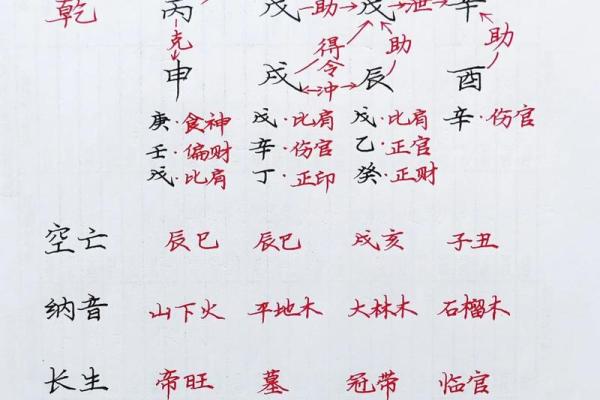 乾 丙 戊 助 戊 泄 辛
克 得令 助 助
申 戌 冲 辰 酉
庚·食神 戊·比肩 戊·比肩 辛·伤官
壬·偏财 辛·伤官 乙·正官
戊·比肩 丁·正印 癸·正财
空亡 辰巳 辰巳 戌亥 子丑
纳音 山下火 平地木 大林木 石榴木
长生 帝旺 墓 冠带 临官